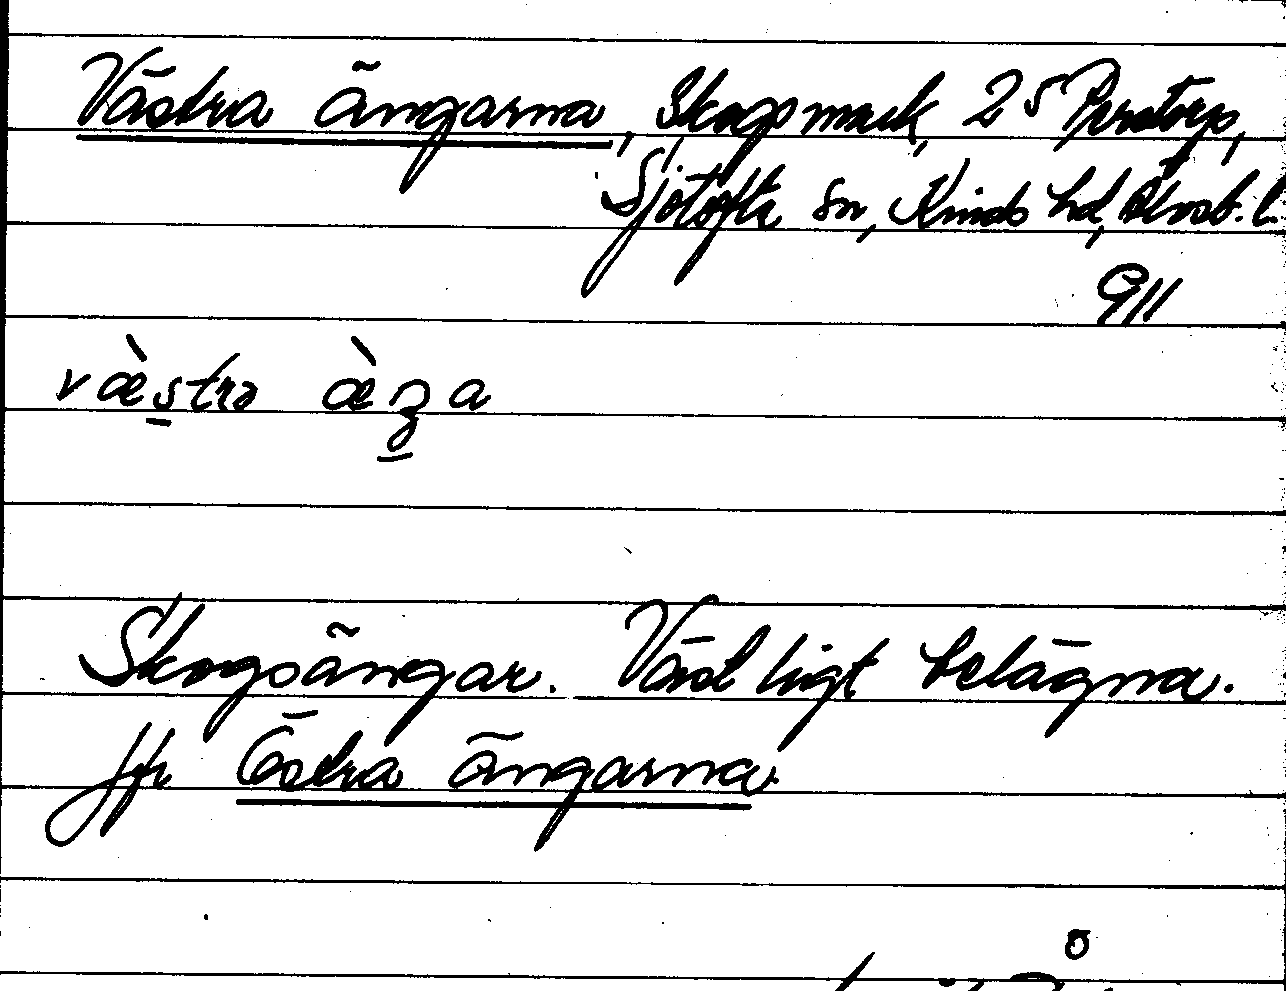 Västra ängarna, Skogsmark, 2 5 Perstorp,
Sjötofta sn, Kinds hd, Älvsb. l.
911
væ̀stra æ̀ʒa
Skogsängar. Västligt belägna.
Jfr Östra ängarna.